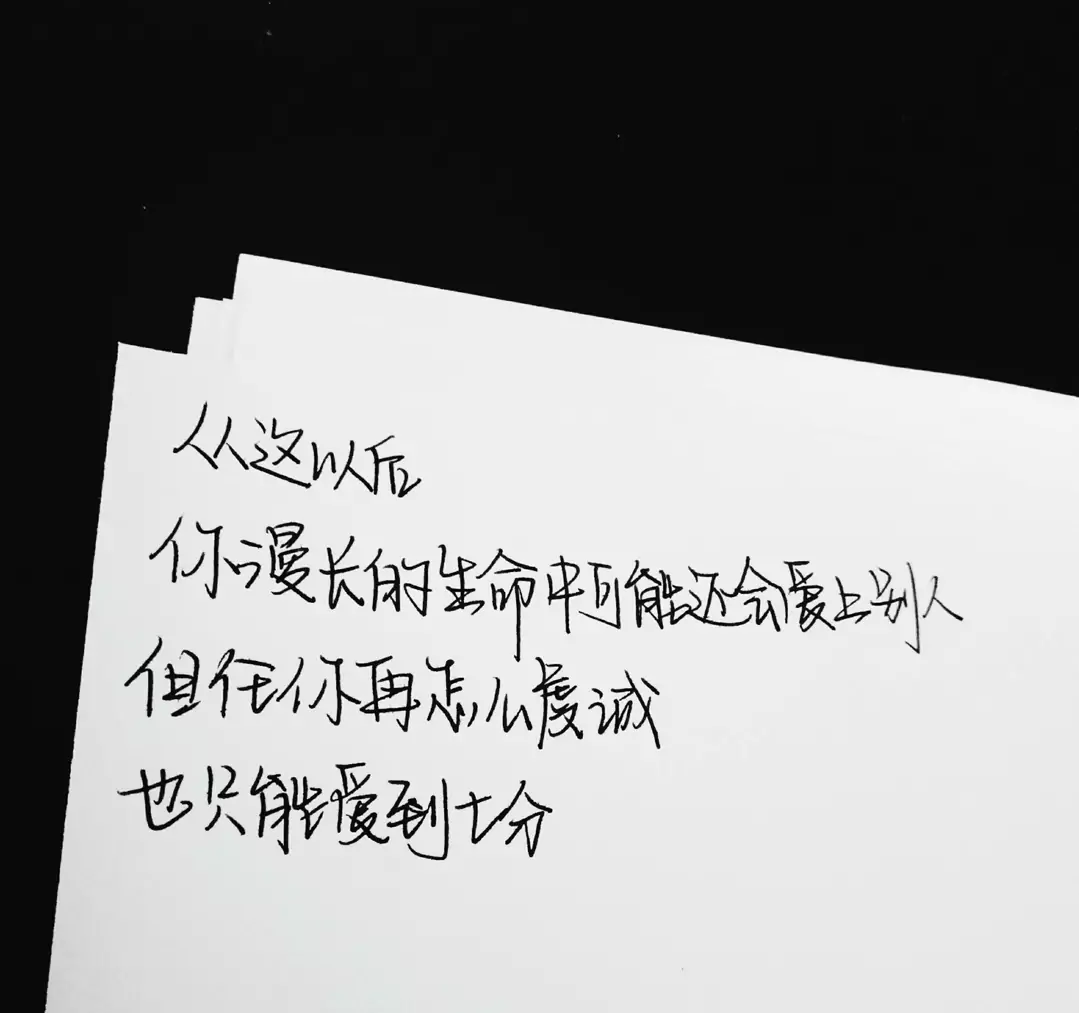 从这以后
你漫长的生命中可能还会爱上别人
但任你再怎么虔诚
也只能爱到七分